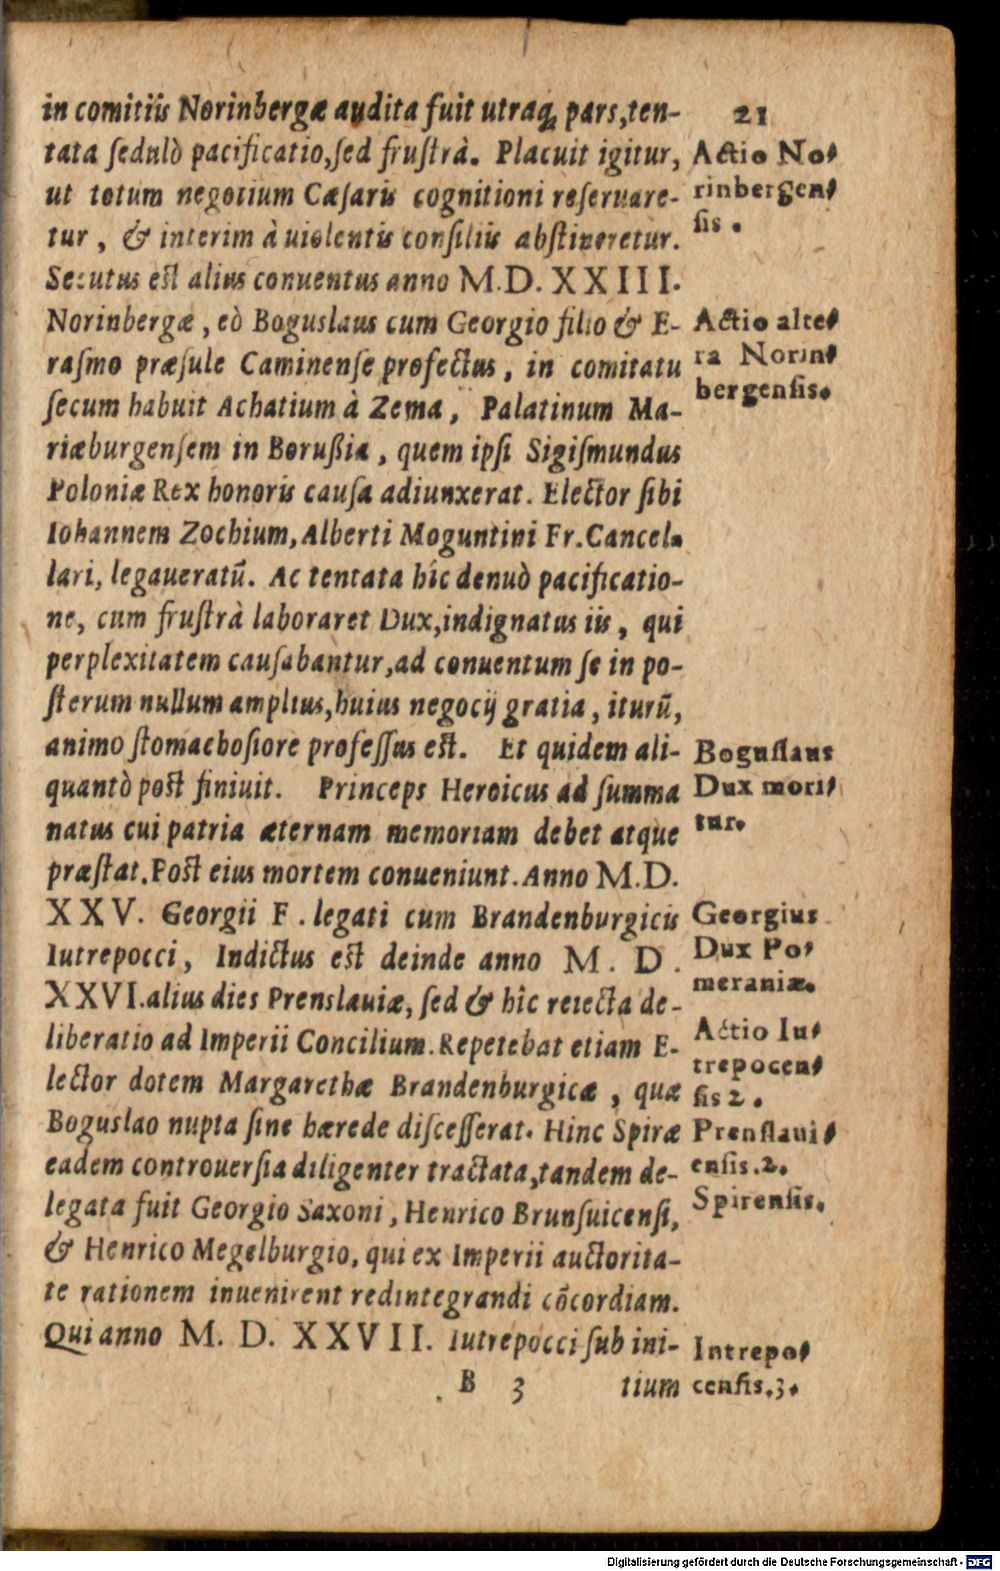 21
in comitiis Norinbergæ audita fuit utraq; pars, ten-
tata sedulò pacificatio, sed frustrà. Placuit igitur,
ut totum negotium Cæsaris cognitioni reservare-
tur, & interim à violentis consiliis abstineretur.
Secutus est alius conventus anno M.D.XXIII.
Norinbergæ, eò Boguslaus cum Georgio filio & E-
rasmo præsule Caminense profectus, in comitatu
secum habuit Achatium à Zema, Palatinum Ma-
riæburgensem in Borußia, quem ipsi Sigismundus
Poloniæ Rex honoris causa adiunxerat. Elector sibi
Iohannem Zochium, Alberti Moguntini Fr. Cancel-
lari, legaueratũ. Ac tentata hîc denuò pacificatio-
ne, cum frustrà laboraret Dux, indignatus iis, qui
perplexitatem causabantur, ad conuentum se in po-
sterum nullum amplius, huius negocij gratia, iturũ,
animo stomachosiore professus est. Et quidem ali-
quantò pòst finiuit. Princeps Heroicus ad summa
natus cui patria æternam memoriam debet atque
præstat. Post eius mortem conueniunt. Anno M.D.
XXV. Georgii F. legati cum Brandenburgicis
Iutrepocci, Indictus est deinde anno M. D.
XXVI. alius dies Prenslauiæ, sed & hîc reiecta de-
liberatio ad Imperii Concilium. Repetebat etiam E-
lector dotem Margarethæ Brandenburgicæ, quæ
Boguslao nupta sine hærede discesserat. Hinc Spiræ
eadem controuersia diligenter tractata, tandem de-
legata fuit Georgio Saxoni, Henrico Brunsuicensi,
& Henrico Megelburgio, qui ex Imperii auctorita-
te rationem inuenirent redintegrandi cõcordiam.
Qui anno M. D. XXVII. Iutrepocci sub ini-
B 3 tium
Actio No-
rinbergen-
sis.
Actio alte-
ra Norin-
bergensis.
Boguslaus
Dux mori-
tur.
Georgius
Dux Po-
meraniæ.
Actio Iu-
trepocen-
sis 2.
Prenslaui-
ensis. 2.
Spirensis.
Intrepo-
censis. 3.
Digitalisierung gefördert durch die Deutsche Forschungsgemeinschaft - DFG